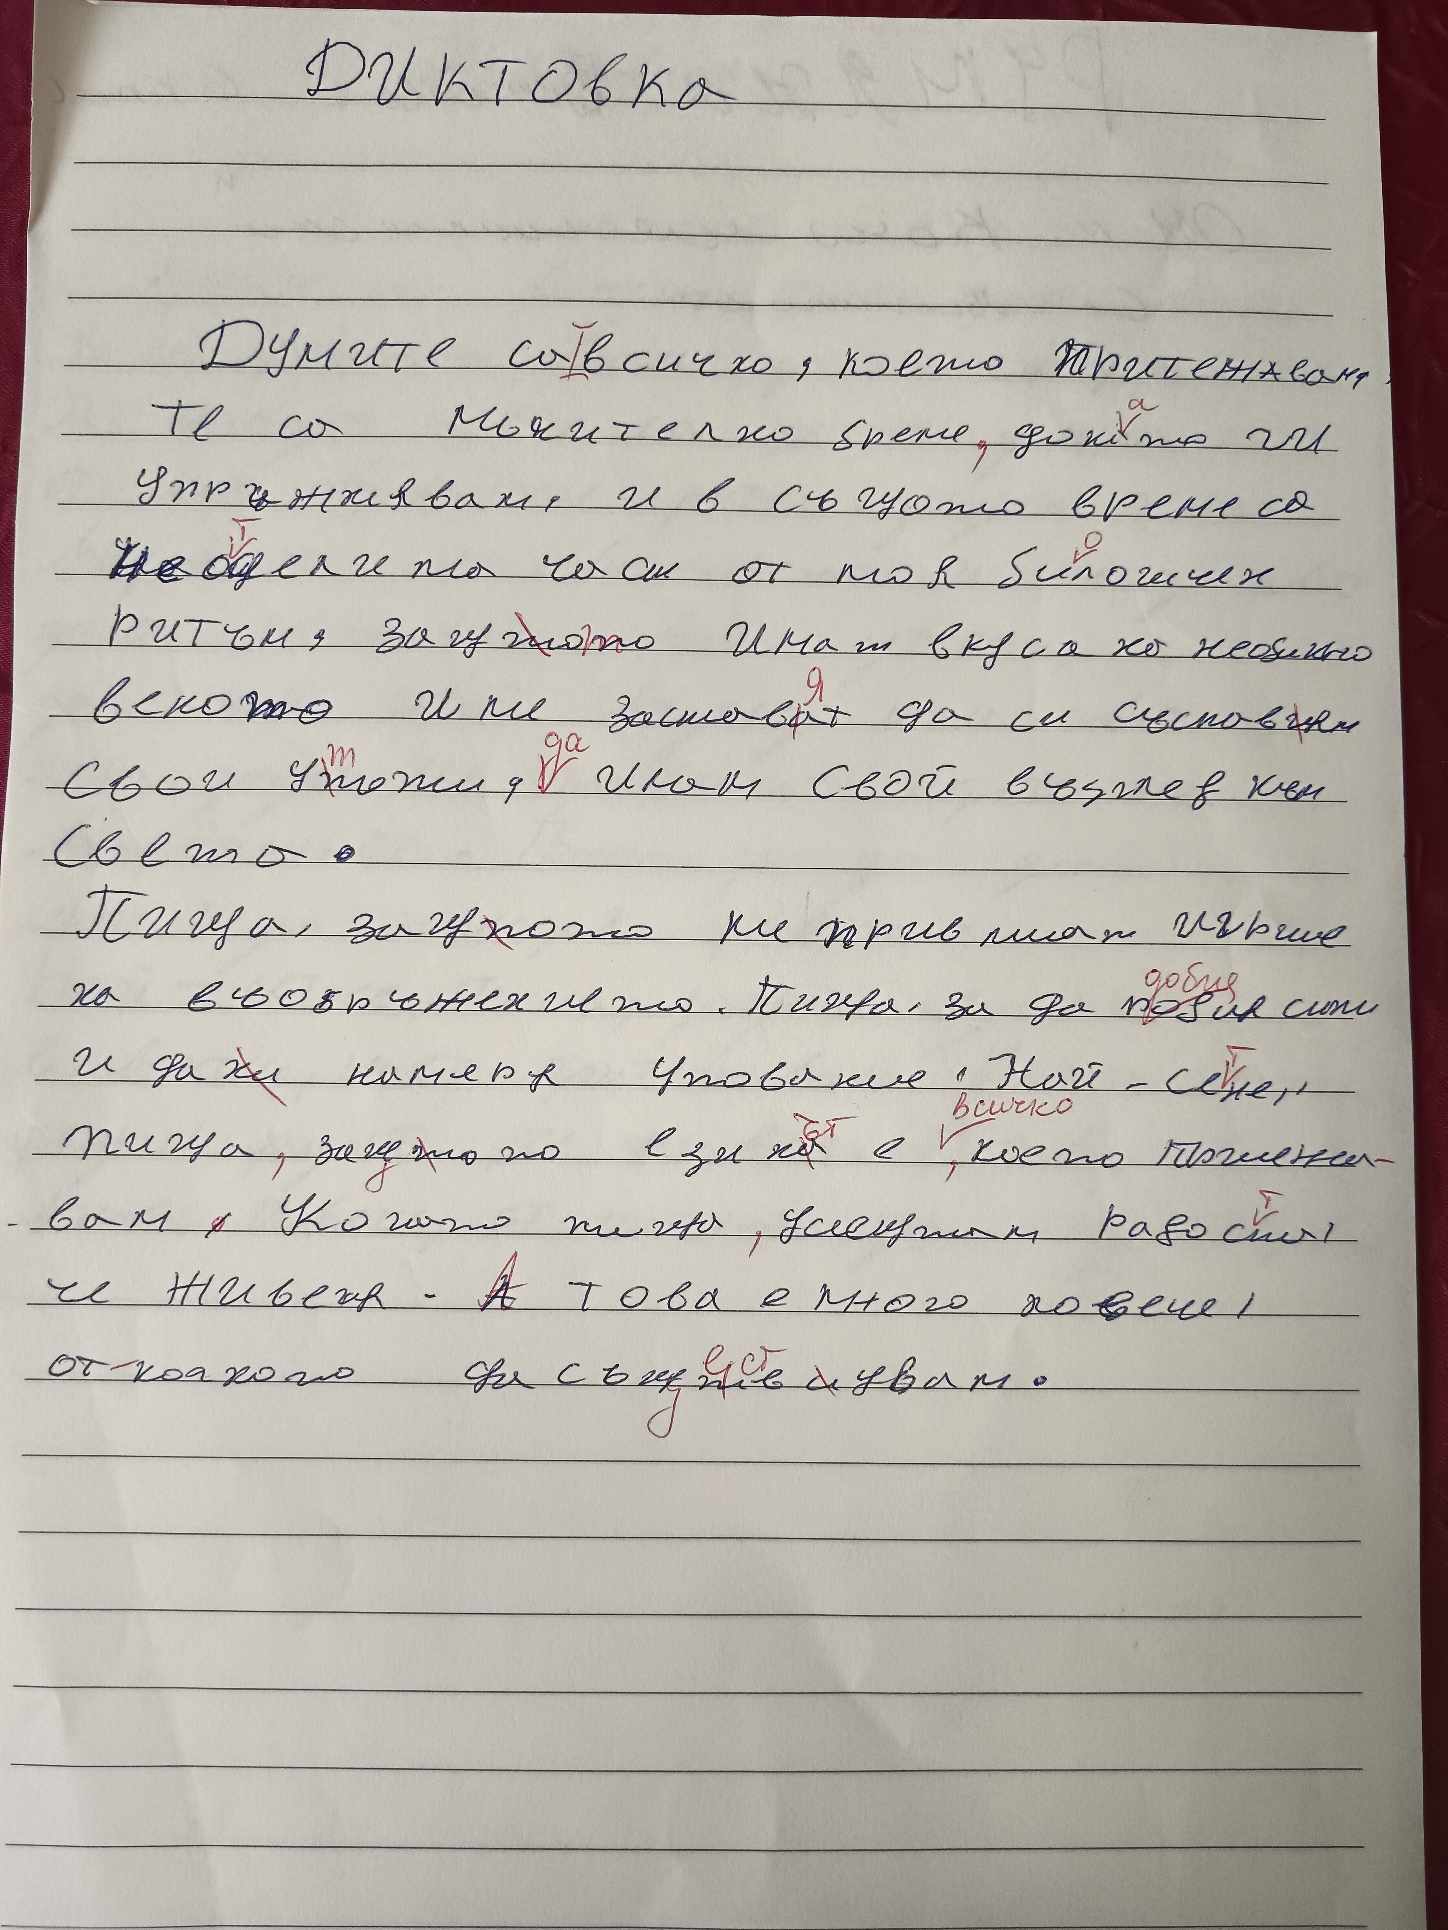 ДИКТОВКА
Думите са всичко, което притежавам,
Те са мъчително бреме, докато ги
упражнявам, и в същото време са
неотделима част от моя биологичен
ритъм, защото имат вкуса на необикно
веното и ме заставят да си съставям
свои утопии, да имам свой възглед към
света.
Пиша, защото ме привличат игрите
на въображението. Пиша, за да добия сили
и да намеря упование. Най-сетне,
пиша, защото езикът е всичко, което притежа-
-вам. Когато пиша, усещам радостта,
че живея - А това е много повече,
от-колкото да съществувам.